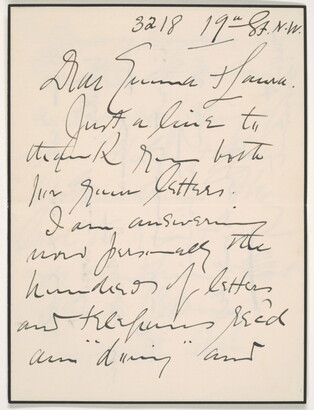 3218 19th St. N.W.
Dear Emma & Laura.
Just a line to
thank you both
for your letters.
I am answering
now personally the
hundreds of letters
and telegrams rec'd
am "dying" and